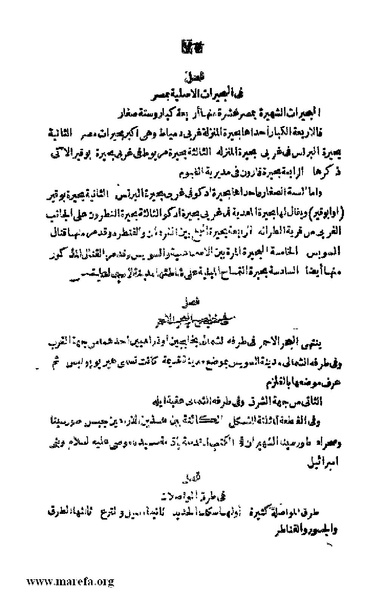 فصل
فى البحيرات الاصلية بمصر
البحيرات الشهيرة بمصر عشرة منها أربعة كبار وستة صغار
فالاربعة الكبار احداها بحيرة المنزلة غربى دمياط وهى أكبر بحيرات مصر الثانية
بحيرة البرلس فى غربى بحيرة المنزله الثالثة بحيرة مريوط فى غربى بحيرة بوقير الآتى
ذكرها الرابعة بحيرة قارون فى مديرية الفيوم
واما الستة الصغار احداها بحيرة ادكو فى غربى بحيرة البرلس الثانية بحيرة بوقير
(أو ابوقير) ويقال لها بحيرة المعدية فى غربى بحيرة ادكو الثالثة بحيرة النطرون على الجانب
الغربى من قرية الطرانه الرابعة بحيرة البلح بين والقنطره وقد مر منها قنال
السويس الخامسة البحيرة المرة بين الاسماعيلية والسويس وقد مر القنال المذكور
منها أيضا السادسة بحيرة التمساح المبنية على شاطئها مدينة الاسماعيلية
فصل
البحر الاحمر
ينتهى البحر الاحمر فى طرفه الشمالى بخليجين أو ذراعين أحدهما من جهة الغرب
وفى طرفه الشمالى مدينة السويس بموضع مدينة قديمة كانت تسمى هيرويوليس ثم
عرف موضعها بالقلزم
الثانى من جهة الشرق وفى طرفه الشمالى عقبة ايله
وفى القطعة المثلثة الشكل الكائنة بين هذين الذراعين جبس صورسينا
وصحراء طورسينا الشهيران فى الكتب المقدسة سيدنا موسى عليه السلام وبنى
اسرائيل
فصل
فى طرق المواصلات
طرق المواصلة كثيرة أولها سكك الحديد ثانيها النيل والترع ثالثها الطرق
والجسور والقناطر
www.marefa.org